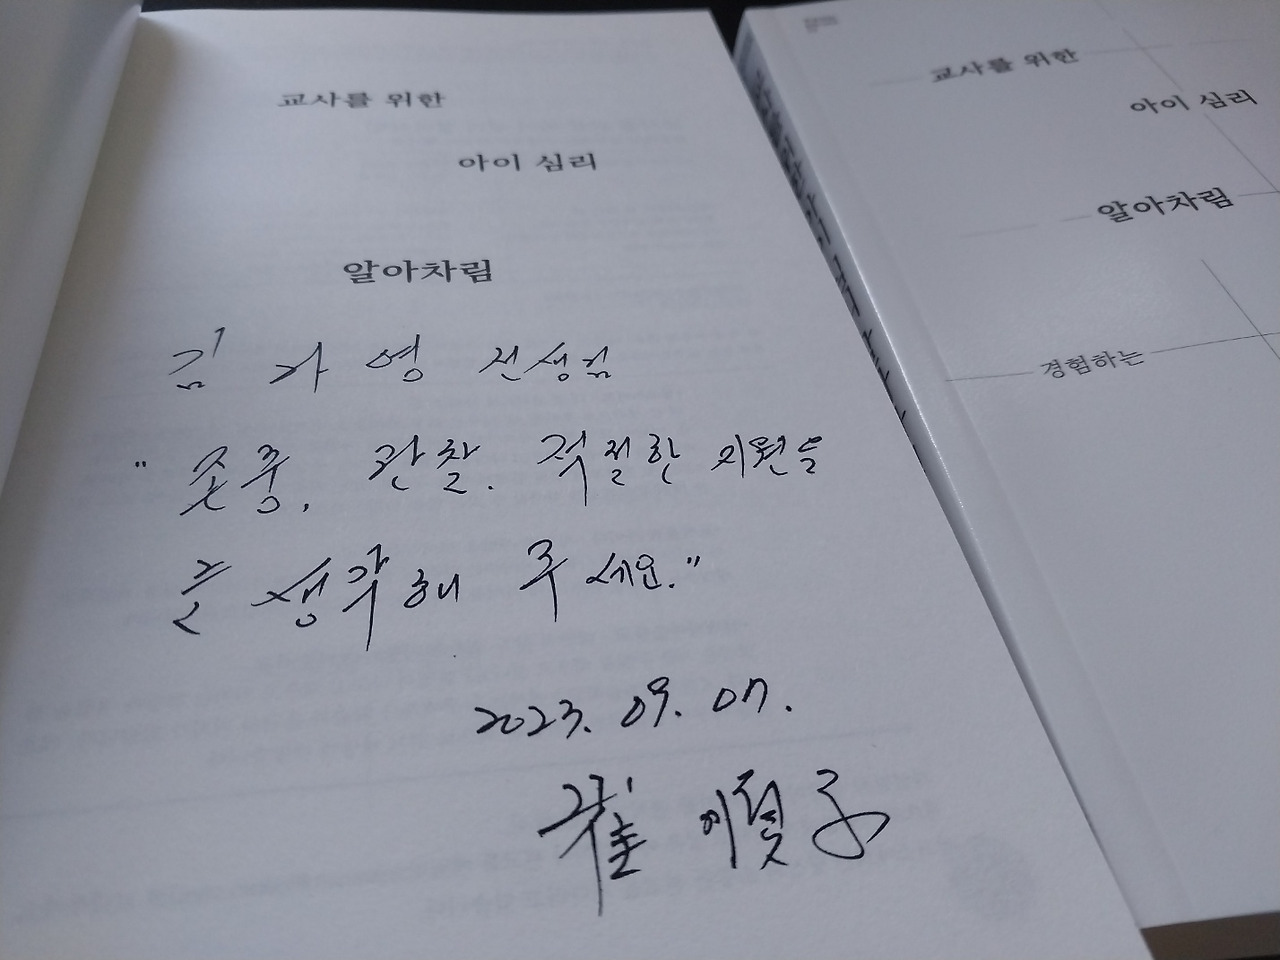 교사를 위한
아이 심리
알아차림
김 가 영 선생님
" 존중, 관찰. 적절한 지원을
늘 생각해 주세요."
2023. 09. 07.
崔 順子
교사를 위한
아이 심리
알아차림
경험하는